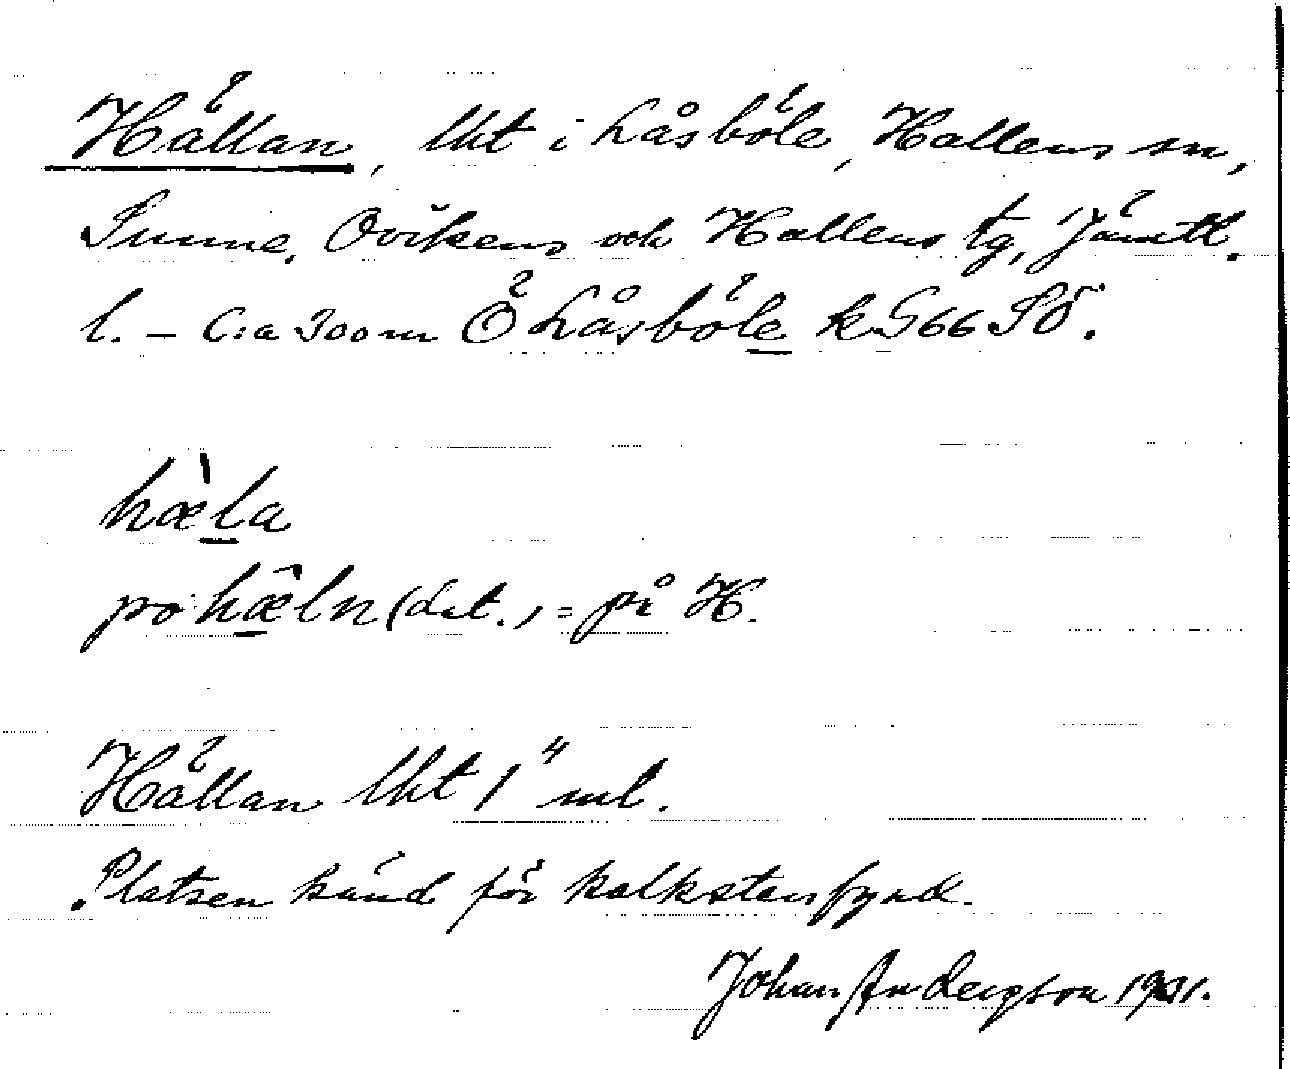 Hällan, lht i Låsböle, Hallens sn,
Sunne, Ovikens och Hallens tg, Jämtl.
l. – C:a 300 m Ö Låsböle k G66 SÖ.
hæ̀la
po hæ̂ln (dat.) = på H.
Hällan lht 1" ml.
Platsen känd för kalkstensfynd.
Johan Andersson 1931.